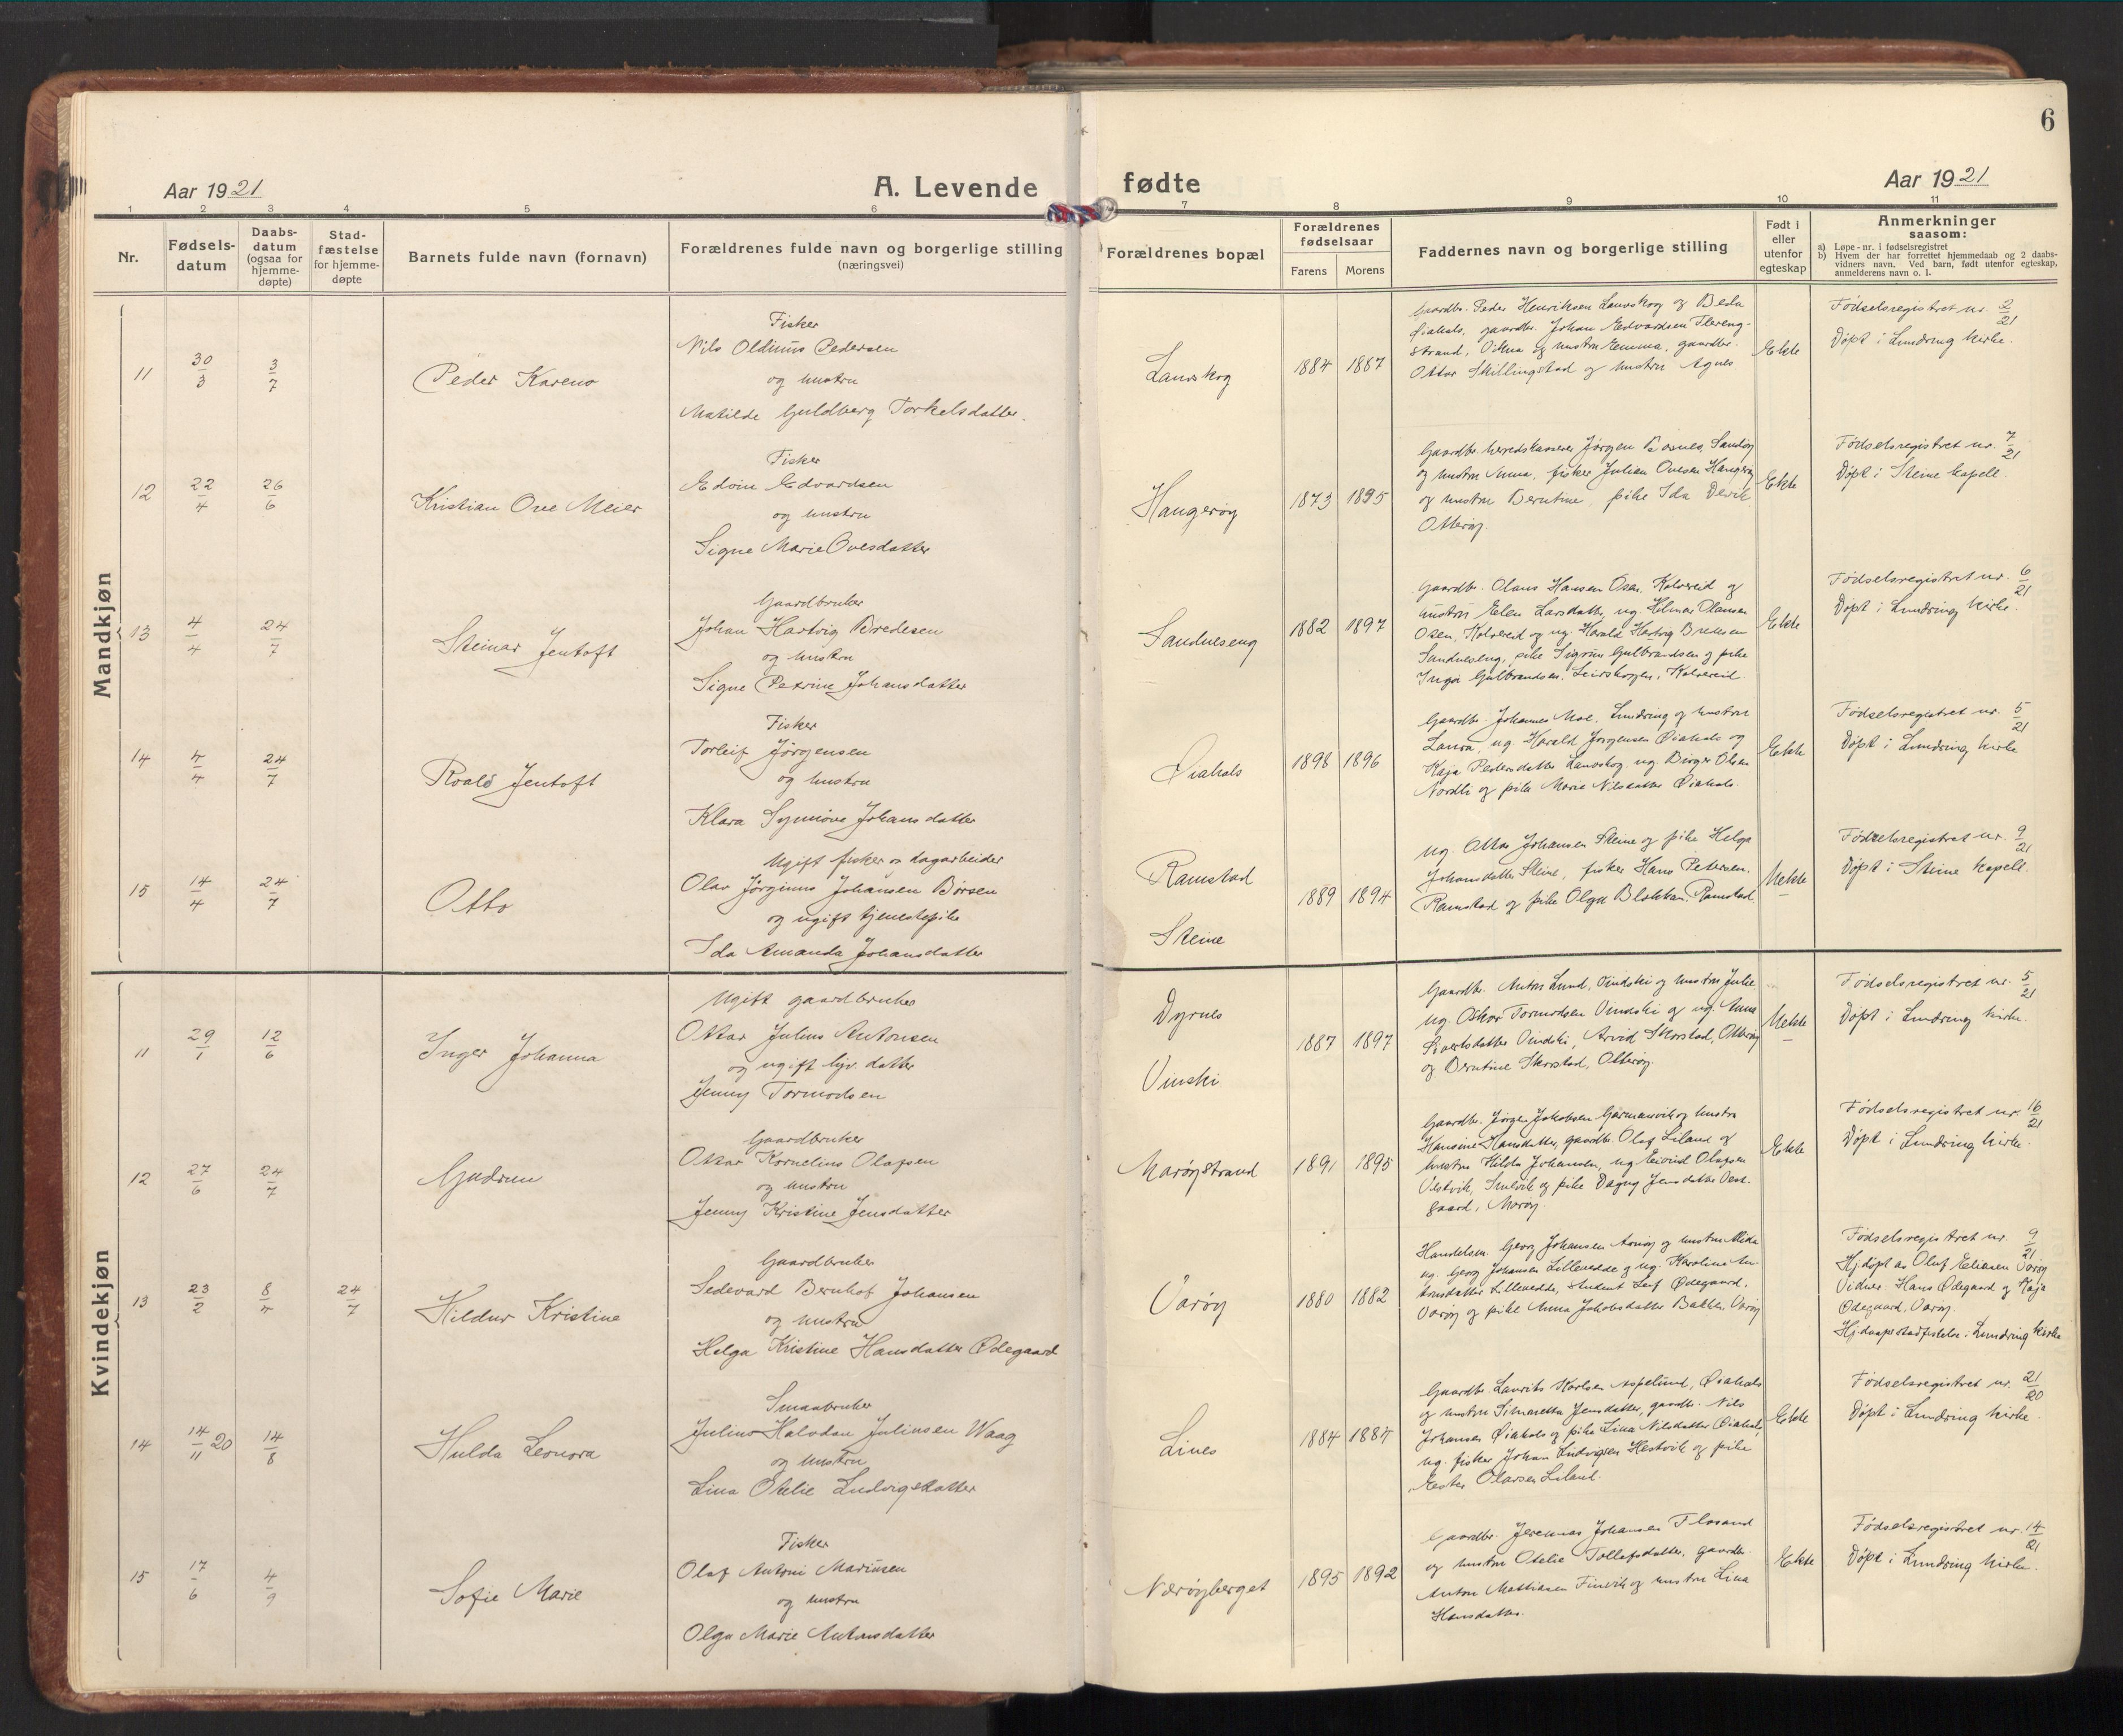 6
Aar 1921
A. Levende
fødte
Aar 1921
1 2 3 4 5 6 7 8 9 10 11
Nr.
Fødsels-
datum
Daabs-
datum
(ogsaa for
hjemme-
døpte)
Stad-
fæstelse
for hjemme-
døpte
Barnets fulde navn (fornavn)
Forældrenes fulde navn og borgerlige stilling
(næringsvei)
Forældrenes bopæl
Forældrenes
fødselsaar
Farens Morens
Faddernes navn og borgerlige stilling
Født i
eller
utenfor
egteskap
Anmerkninger
saasom:
a) Løpe-nr. i fødselsregistret
b) Hvem der har forrettet hjemmedaab og 2 daabs-
vidners navn. Ved barn, født utenfor egteskap,
anmelderens navn o. l.
Mandkjøn
11
30/3
3/7
Peder Kareno
Fisker
Nils Oldinus Pedersen
og hustru
Matilde Guldberg Torkelsdatter.
Lauvskog
1884 1887
Gaardbr. Peder Henriksen Lauvskog og Berla
Øiahals, gaardbr. Johan Edvardsen Flereng-
strand, Vikna og hustru Emma, gaardbr.
Ottar Skillingstad og hustru Agnes
Ekte
Fødselsregistret nr. 2/21
Døpt i Lundring kirke.
12
22/4
26/6
Kristian Ove Meier
Fisker
Edvin Edvardsen
og hustru
Signe Marie Ovesdatter
Haugerøy
1873 1895
Gaardbr. herredskasserer Jørgen
og hustru Anna, fisker Julian Ovesen Haugerøy
og hustru Berntine, pike Ida Dervik
Otterøy.
Ekte
Fødselsregistret nr. 7/21
Døpt i Steine kapell.
13
4/4
24/7
Steinar Jentoft
Gaardbruker
Johan Hartvig Bredesen
og hustru
Signe Petrine Johansdatter
Sandneseng
1882 1897
Gaardbr. Olaus Hansen Osen, Kolvereid og
hustru Elen Larsdatter, ug. Helmer Olausen
Osen, Kolvereid og ug. Harald Hartvig Bredesen
Sandneseng, pike Sigrun Gulbrandsen og pike
Inga Gulbrandsen, Leirskogen, Kolvereid.
Ekte
Fødselsregistret nr. 6/21
Døpt i Lundring kirke.
14
4/4
24/7
Roald Jentoft
Fisker
Torleif Jørgensen
og hustru
Klara Synnøve Johansdatter
Øiahals
1898 1896
Gaardbr. Johannes Moe, Lundring og hustru
Laura, ug. Harald Jørgensen Øiahals og
Kaja Pedersdatter Lauvskog, ug. Birger Olsen
Nordli og pike Marie Nilsdatter Øiahals.
Ekte
Fødselsregistret nr. 5/21
Døpt i Lundring kirke
15
14/4
24/7
Otto
Ugift fisker og dagarbeider
Olav Jørginus Johansen Børsen
og ugift tjenestepike
Ida Amanda Johansdatter
Ramstad
Steine
1889 1894
Ug. Ottar Johansen Steine og pike Helga
Johansdatter Steine, fisker Hans Pettersen
Ramstad og pike Olga Blokkan, Ramstad
Uekte
Fødselsregistret nr. 9/21
Døpt i Steine kapell.
Kvindekjøn
11
29/1
12/6
Inger Johanna
Ugift gaardbruker
Ottar Julius Antonsen
og ugift hjv. datter
Jenny Tormodsen
Dyrnes
Vinski
1887 1897
Gaardbr. Anton Lund, Vindski og hustru Julie
Ug. Oskar Tormodsen Vindski og ug. Anna
Sivertsdatter Vindski, Arvid Skorstad, Otterøy
og Berntine Skorstad, Otterøy.
Uekte
Fødselsregistret nr. 5/21
Døpt i Lundring kirke.
12
27/6
24/7
Gudrun
Gaardbruker
Ottar Kornelius Olafsen
og hustru
Jenny Kristine Jensdatter
Marøystrand
1891 1895
Gaardbr. Jørgen Jakobsen Germansvik og hustru
Hansine Hansdatter, gaardbr. Olaf Liland og
hustru Hilda Johansen, ug. Eivind Olafsen
Vestvik, og pike Dagny Jensdatter Vest-
gaard, Marøy
Ekte
Fødselsregistret nr. 16/21
Døpt i Lundring kirke.
13
23/2
8/4
24/7
Hildur Kristine
Gaardbruker
Sedevard Bernhof Johansen
og hustru
Helga Kristine Hansdatter Ødegaard
Varøy
1880 1882
Handelsm. Georg Johansen Arnøy og hustru Alida
ug. Georg Johansen Lillevedde og ug. Karoline An-
tonsdatter Lillevedde, student Leif Ødegaard,
Varøy og pike Anna Jakobsdatter Bakken, Varøy
Fødselsregistret nr. 9/21
Hj.døpt av Oluf Eliasen Varøy
Vidner Hans Ødegaard og Kaja
Ødegaard, Varøy.
Hj.daaps stadfæstelse i Lundring kirke
14
14/11 20
14/8
Hulda Leonora
Smaabruker
Julius Halvdan Juliussen Waag
og hustru
Lina Otelie Ludvigsdatter
Lines
1884 1884
Gaardbr. Laurits Karlsen Aspelund, Øiahals
og hustru Simanetta Jensdatter, gaardbr. Nils
Johansen Øiahals og pike Lina Nilsdatter Øiahals,
ug. fisker Johan Ludvigsen Hestvik og pike
Ester Olavsen Liland.
Ekte
Fødselsregistret nr. 21/20
Døpt i Lundring kirke.
15
17/6
4/9
Sofie Marie
Fisker
Olaf Antoni Mariusen
og hustru
Olga Marie Antonsdatter
Nærøyberget
1895 1892
Gaardbr. Jeremias Johansen Flosand
og hustru Otelie Tollefsdatter, gaardbr.
Anton Mattiasen Finvik og hustru Lina
Hansdatter.
Ekte
Fødselsregistret nr. 14/21
Døpt i Lundring kirke.